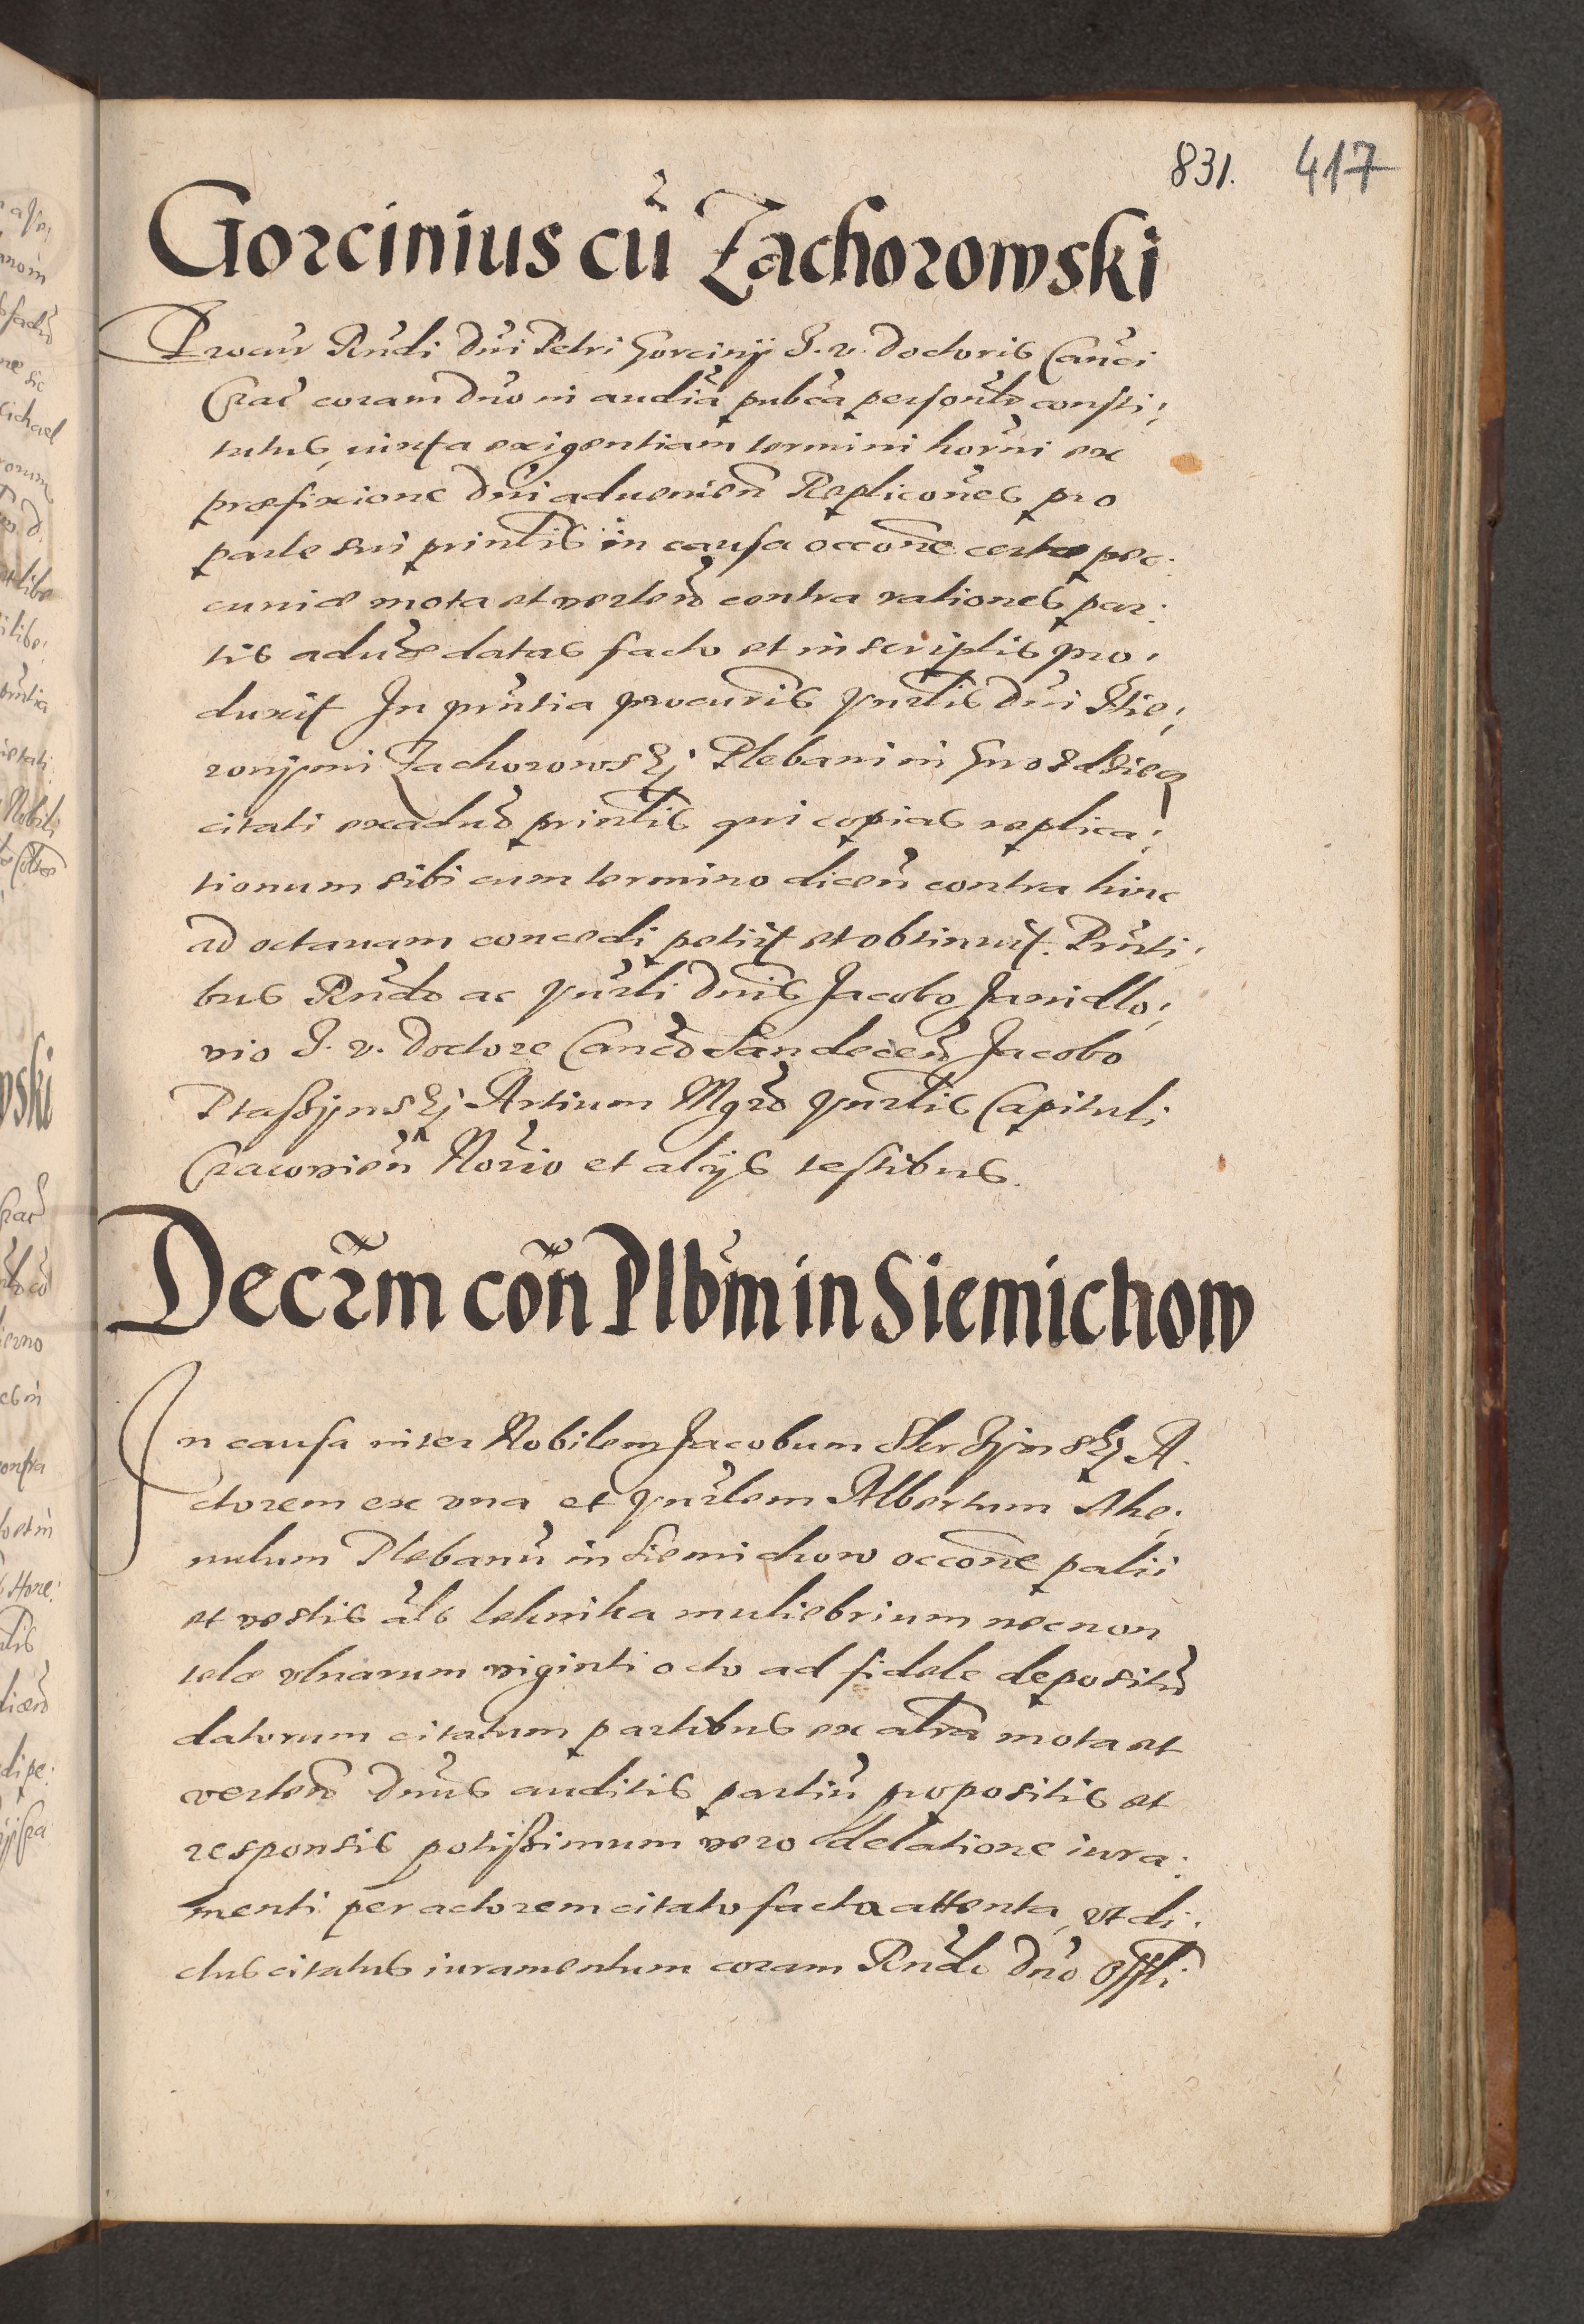 831. 417
Gorcinius cū Zachorowski
Procur Rndi Dni Petri Gorcinij J. v. Doctoris Canci
Crac coram Dno in audia pubca personlr consti;
tutus, iuxta exigentiam termini horni ex
præfixione Dni aduenien Replicones pro
parte sui prinlis in causa occone certæ pec:
cuniæ mota et verten contra rationes par:
tis aduæ datas facto et in scriptis pro:
duxit In prntia procuris vnrlis Dni Hie;
ronÿmi Zachorowskj Plebani in
citati exaduo prinlis qui copias replica;
tionum sibi cum termino dicen contra hinc
ad octauam concedi petiit et obtinuit. Prnti:
bus Rndo ac vnrli Dnis Jacobo Janidlo;
vio J. v. Doctore Canco Sandecen Jacobo
Artium Mgro vnrlis Capituli
Cracouien Norio et alÿs testibus.
Decrm con Plbm in Siemichow
In causa inter Nobilem Jacobum A:
ctorem ex vna et vnrlem Albertum Ahe;
nulum Plebanū in Siemichow occone palii
et vestis als letnika muliebrium necnon
telæ vlnarum viginti octo ad fidele depositū
datorum citatum partibus ex altra mota et
verten Dnus auditis partiū propositis et
responsis potissimum vero delatione iura:
menti per actorem citato facta attenta, vt di:
ctus citatus iuramentum coram Rndo Dno Offli